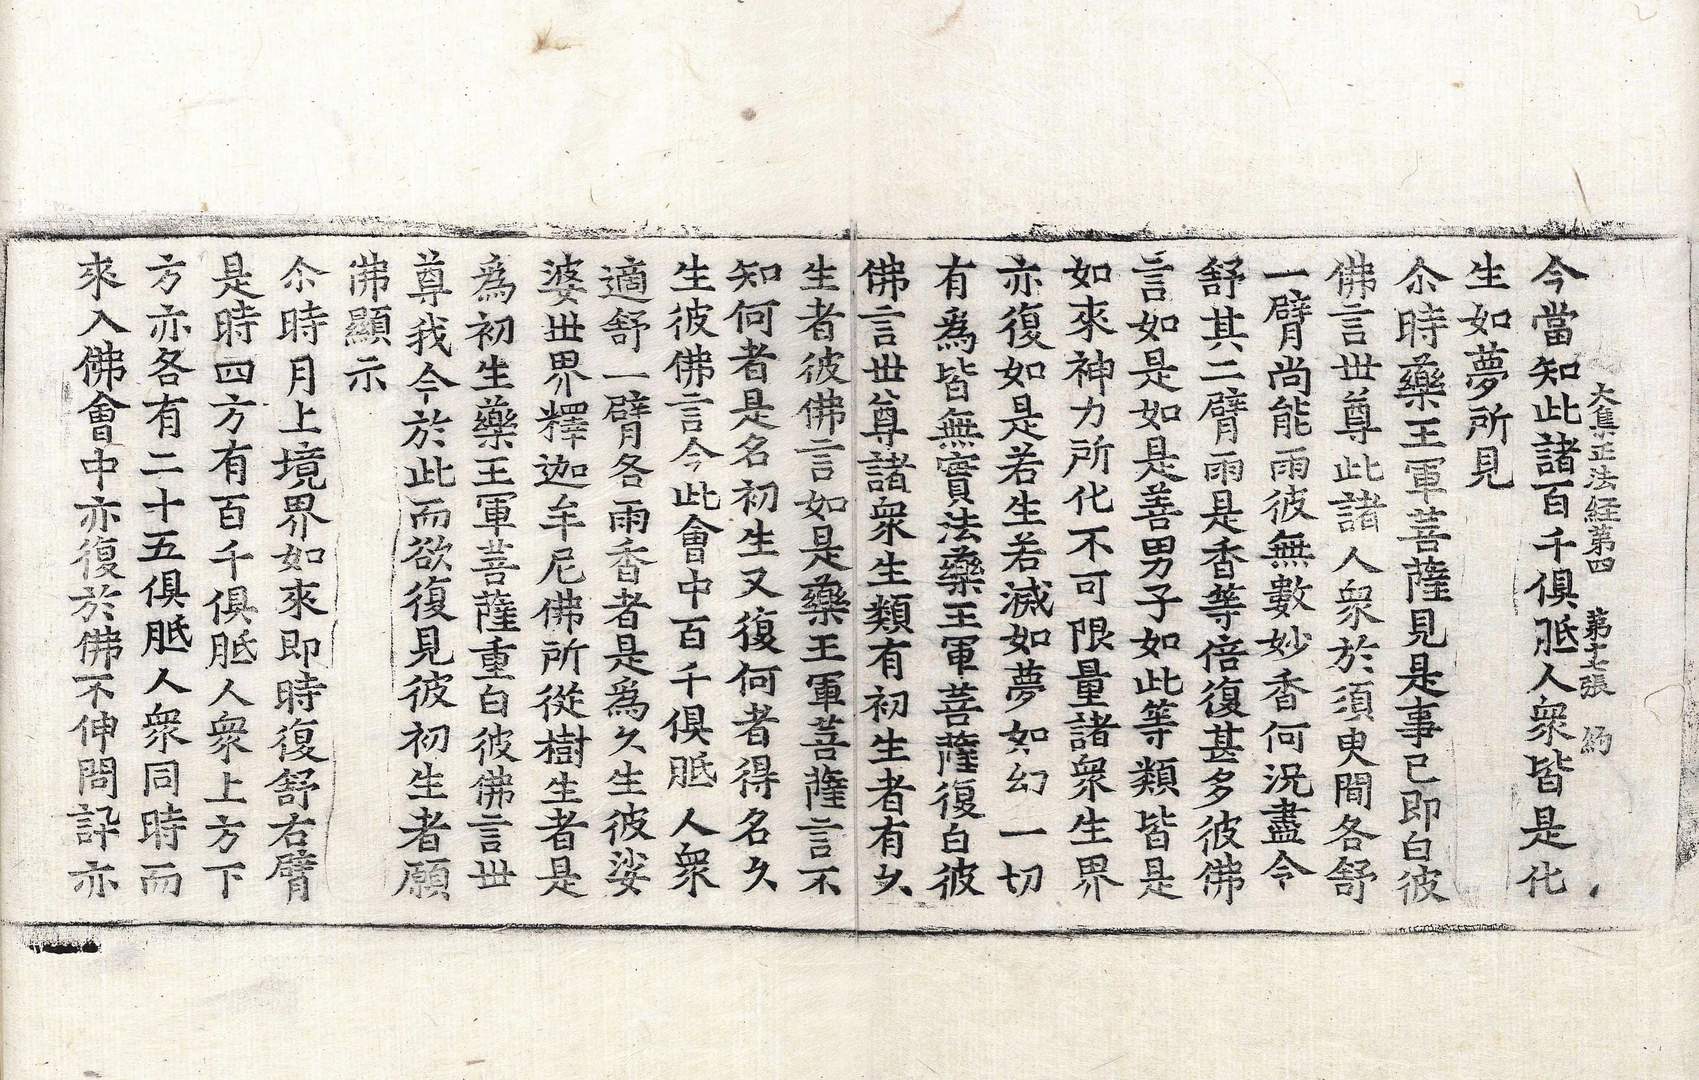 大集正法経第四　第十七張　約
今當知此諸百千俱胝人衆皆是化
生如夢所見
尒時藥王軍菩薩見是事已即白彼
佛言世尊此諸人衆於須臾間各舒
一臂尚能雨彼無數妙香何況盡令
舒其二臂雨是香等倍復甚多彼佛
言如是如是善男子如此等類皆是
如來神力所化不可限量諸衆生界
亦復如是若生若滅如夢如幻一切
有爲皆無實法藥王軍菩薩復白彼
佛言世尊諸衆生類有初生者有久
生者彼佛言如是藥王軍菩薩言不
知何者是名初生又復何者得名久
生彼佛言今此會中百千俱胝人衆
適舒一臂各雨香者是爲久生彼娑
婆世界釋迦牟尼佛所從樹生者是
爲初生藥王軍菩薩重白彼佛言世
尊我今於此而欲復見彼初生者願
佛顯示
尒時月上境界如來即時復舒右臂
是時四方有百千俱胝人衆上方下
方亦各有二十五俱胝人衆同時而
來入佛會中亦復於佛不伸問訊亦